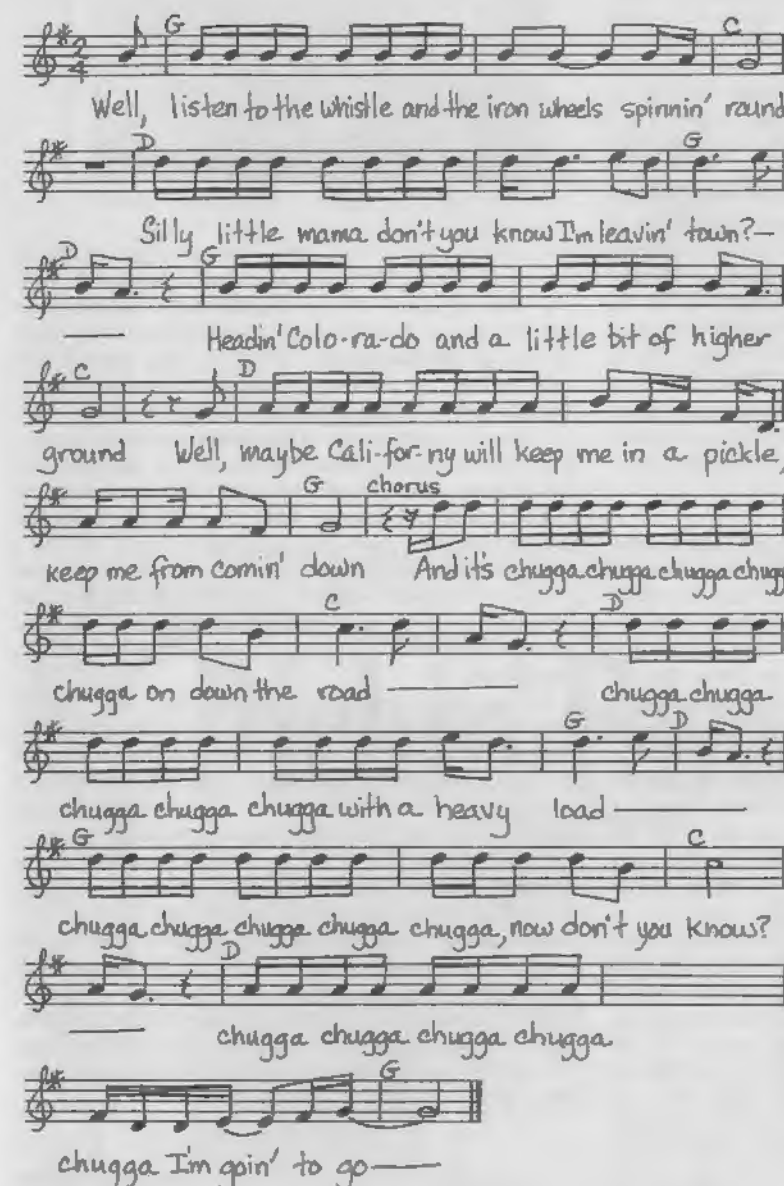 G C
2 4
Well, listen to the whistle and the iron wheels spinnin' round
D G
Silly little mama don't you know I'm leavin' town?—
D G
Headin' Colo-ra-do and a little bit of higher
C D
ground Well, maybe Cali-for-ny will keep me in a pickle,
G chorus
keep me from comin' down And it's chugga chugga chugga chugg
C D
chugga on down the road — chugga chugga
G D
chugga chugga chugga with a heavy load —
G C
chugga chugga chugga chugga chugga, now don't you know?
D
— chugga chugga chugga chugga
G
chugga I'm goin' to go —